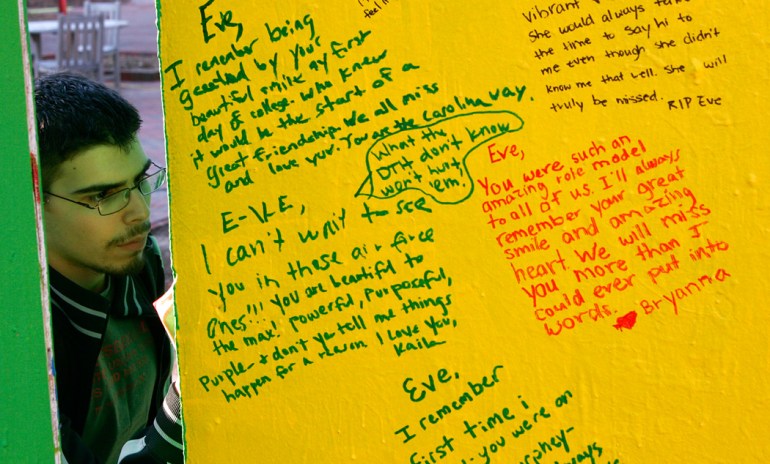 feel
Eve,
I remember being
greeted by your
beautiful smile my first
day of college. Who knew
it would be the start of a
great friendship. We all miss
and love you. You are the Carolina way.
What the
DTH don't know
won't hurt
'em,
E-V-E,
I can't wait to see
you in those air force
ones!!! You are beautiful to
the max! powerful, Purposeful,
Purple- + don't you tell me things
happen for a reason I love you,
Kaila
Eve,
I remember
first time i
you were on
vibrant
she would always take
the time to say hi to
me even though she didn't
know me that well. She will
truly be missed.
RIP Eve
Eve,
You were such an
amazing role model
to all of us. I'll always
remember your great
smile and amazing
heart. We will miss
you more than I
could ever put into
words.
Bryanna